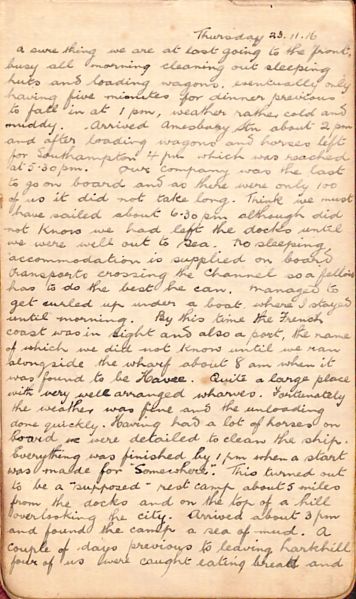 Thursday 23.11.16
a sure thing we are at last going to the front,
busy all morning cleaning out sleeping
huts and loading wagons, eventually only
having five minutes for dinner previous
to fall in at 1 pm, weather rather cold and
muddy. Arrived Amesbury Stn about 2 pm
and after loading wagons and horses left
for Southampton 4 pm which was reached
at 5.30 pm. Our company was the last
to go on board and as there were only 100
of us it did not take long. Think we must
have sailed about 6.30 pm although did
not know we had left the docks until
we were well out to sea. No sleeping
accommodation is supplied on board
transports crossing the Channel so a fellow
has to do the best he can. Managed to
get curled up under a boat where I stayed
until morning. By this time the French
coast was in sight and also a port, the name
of which we did not know until we ran
alongside the wharf about 8 am when it
was found to be Havre. Quite a large place
with very well arranged wharves. Fortunately
the weather was fine and the unloading
done quickly. Having had a lot of horses on
board we were detailed to clean the ship.
Everything was finished by 1 pm when a start
was made for "Somewhere". This turned out
to be a "supposed" rest camp about 5 miles
from the docks and on the top of a hill
overlooking the city. Arrived about 3 pm
and found the camp a sea of mud. A
couple of days previous to leaving Larkhill
four of us were caught eating bread and